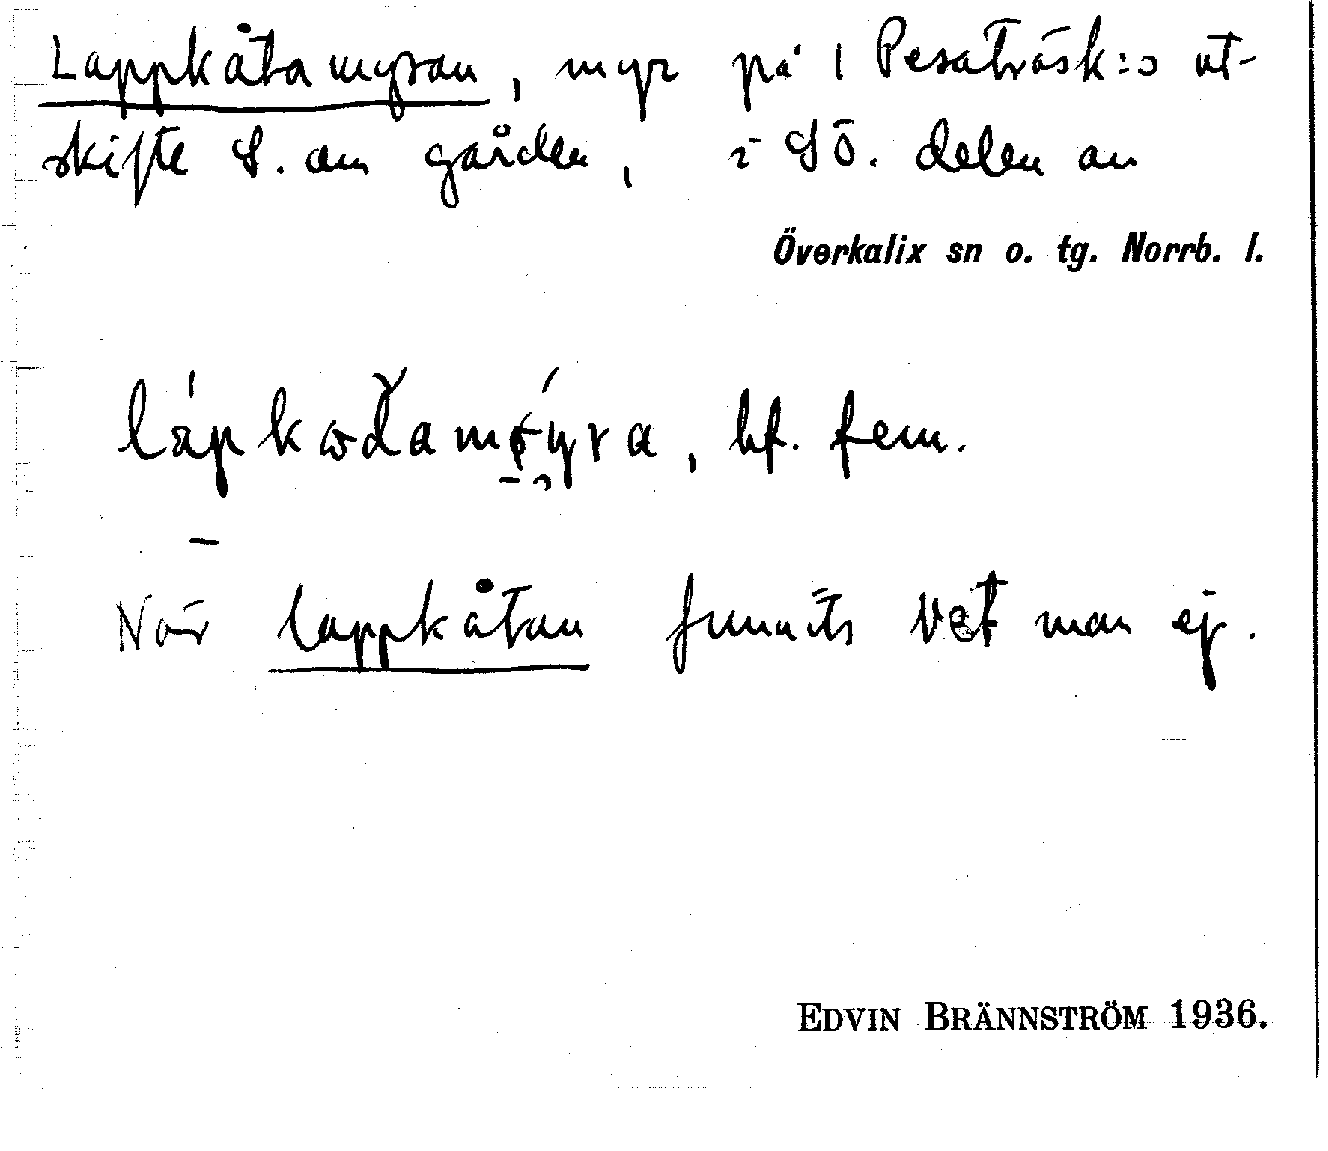 Lappkåtamyran, myr på 1 Pesaträsk:s ut-
skifte S. om gården, i SÖ. delen av
Överkalix sn o. tg. Norrb. l.
bf. fem.
När lappkåtan funnits vet man ej.
EDVIN BRÄNNSTRÖM 1936.